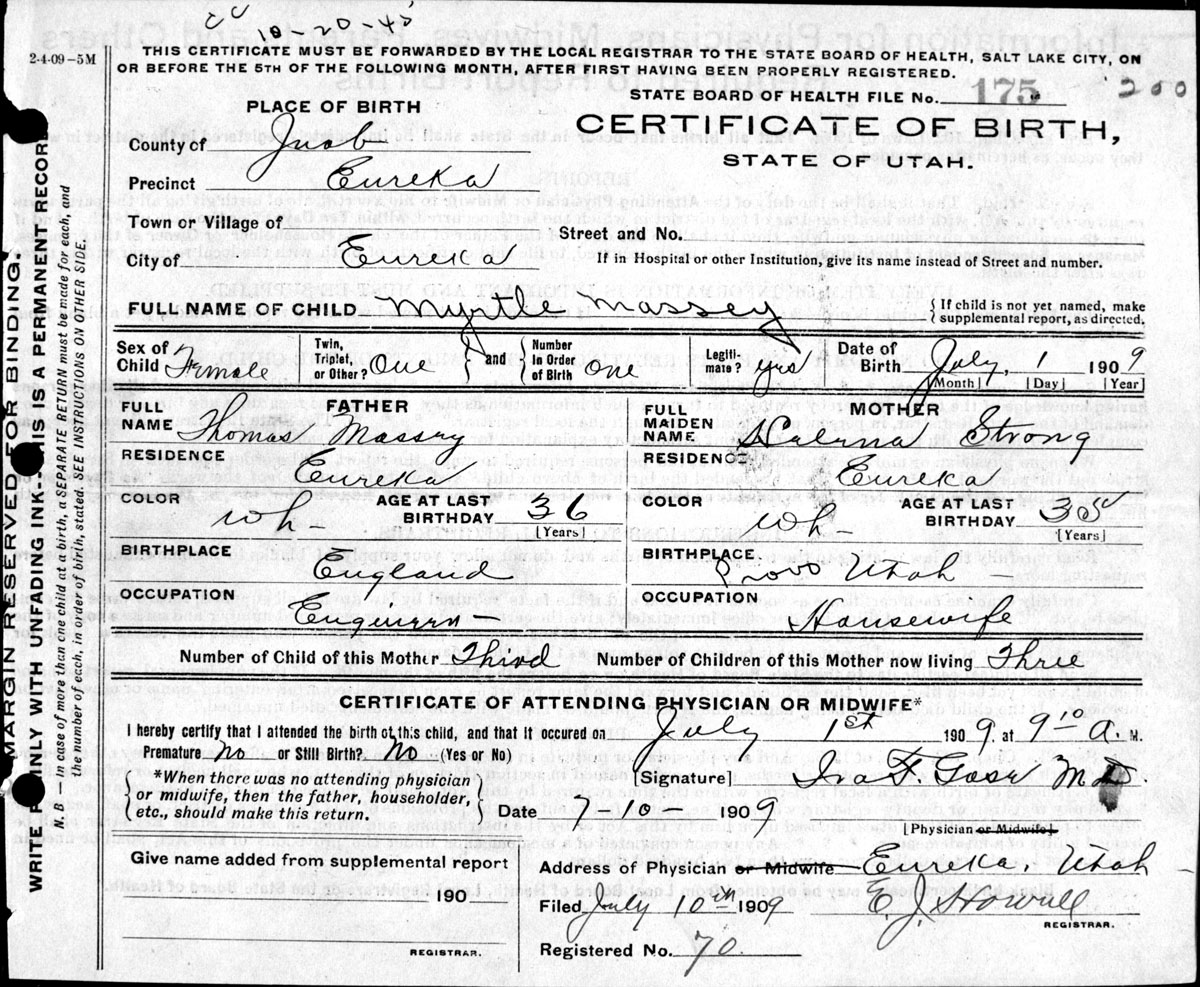 10-20-43
2-4-09-5M
THIS CERTIFICATE MUST BE FORWARDED BY THE LOCAL REGISTRAR TO THE STATE BOARD OF HEALTH, SALT LAKE CITY, ON
OR BEFORE THE 5TH OF THE FOLLOWING MONTH, AFTER FIRST HAVING BEEN PROPERLY REGISTERED.
STATE BOARD OF HEALTH FILE No. 175 - 200
PLACE OF BIRTH
CERTIFICATE OF BIRTH,
STATE OF UTAH.
County of Juab
Precinct Eureka
Town or Village of
Street and No.
City of Eureka
If in Hospital or other Institution, give its name instead of Street and number.
FULL NAME OF CHILD Myrtle Massey
{If child is not yet named, make
supplemental report, as directed.
Sex of Child Female
Twin, Triplet, or Other? One } and { Number in Order of Birth One
Legiti-mate? yes
Date of Birth July, 1 1909
[Month] [Day] [Year]
FATHER
FULL NAME Thomas Massey
RESIDENCE Eureka
COLOR wh- AGE AT LAST BIRTHDAY 36 [Years]
BIRTHPLACE England
OCCUPATION Engineer
MOTHER
FULL MAIDEN NAME Strong
RESIDENCE Eureka
COLOR Wh- AGE AT LAST BIRTHDAY [Years]
BIRTHPLACE Provo Utah -
OCCUPATION Housewife
Number of Child of this Mother Third Number of Children of this Mother now living Three
CERTIFICATE OF ATTENDING PHYSICIAN OR MIDWIFE*
I hereby certify that I attended the birth of this child, and that it occured on July 1st 1909, at 9 10 A. M.
Premature no or Still Birth? No (Yes or No)
*When there was no attending physician
or midwife, then the father, householder,
etc., should make this return.
[Signature] Ira F. M.D
Date 7-10- 1909
[Physician or Midwife]
Give name added from supplemental report
190
REGISTRAR.
Address of Physician or Midwife Eureka, Utah
Filed July 10th 1909 E. J. Howell
REGISTRAR.
Registered No. 70.
MARGIN RESERVED FOR BINDING.
WRITE PLAINLY WITH UNFADING INK--THIS IS A PERMANENT RECORD
N. B.—In case of more then one child at a birth, a SEPARATE RETURN must be made for each, and
the number of each, in order of birth, stated. SEE INSTRUCTIONS ON OTHER SIDE.